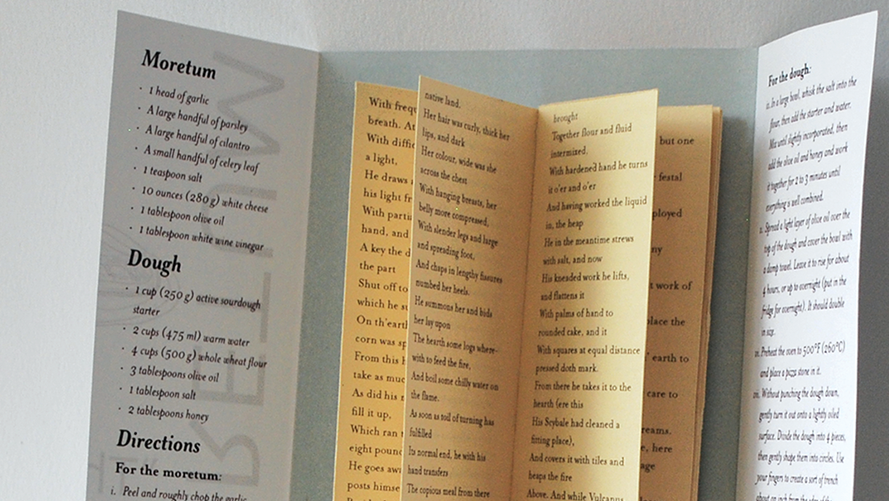 Moretum
· 1 head of garlic
· A large handful of parsley
· A large handful of cilantro
· A small handful of celery leaf
· 1 teaspoon salt
· 10 ounces (280 g) white cheese
· 1 tablespoon olive oil
· 1 tablespoon white wine vinegar
Dough
· 1 cup (250 g) active sourdough
starter
· 2 cups (475 ml) warm water
· 4 cups (500 g) whole wheat flour
· 3 tablespoons olive oil
· 1 tablespoon salt
· 2 tablespoons honey
Directions
For the moretum:
i. Peel and roughly chop the garlic
With freq
breath. At
With diffic
a light,
He draws
his light fr
With parti
hand, and
A key the d
the part
Shut off to
which he su
On th'earth
corn was sp
From this h
take as muc
As did his
fill it up,
Which ran
eight pound
He goes aw
posts himse
native land.
Her hair was curly, thick her
lips, and dark
Her colour, wide was she
across the chest
With hanging breasts, her
belly more compressed,
With slender legs and large
and spreading foot,
And chaps in lengthy fissures
numbed her heels.
He summons her and bids
her lay upon
The hearth some logs where-
with to feed the fire,
And boil some chilly water on
the flame.
As soon as toil of turning has
fulfilled
Its normal end, he with his
hand transfers
The copious meal from there
brought
Together flour and fluid
intermixed.
With hardened hand he turns
it o'er and o'er
And having worked the liquid
in, the heap
He in the meantime strews
with salt, and now
His kneaded work he lifts,
and flattens it
With palms of hand to
rounded cake, and it
With squares at equal distance
pressed doth mark.
From there he takes it to the
hearth (ere this
His Scybale had cleaned a
fitting place),
And covers it with tiles and
heaps the fire
Above. And while Vulcanus
but one
festal
ployed
ny
work of
place the
earth to
care to
reams.
, here
age
For the dough:
In a large bowl, whisk the salt into the
flour, then add the starter and water.
Mix until lightly incorporated, then
add the olive oil and honey and work
it together for 2 to 3 minutes until
everything is well combined.
Spread a light layer of olive oil over the
top of the dough and cover the bowl with
a damp towel. Leave it to rise for about
4 hours, or up to overnight (put in the
fridge for overnight). It should double
in size.
Preheat the oven to 500°F (260°C)
and place a pizza stone in it.
Without punching the dough down,
gently turn it out onto a lightly oiled
surface. Divide the dough into 4 pieces,
then gently shape them into circles. Use
your fingers to create a sort of trench